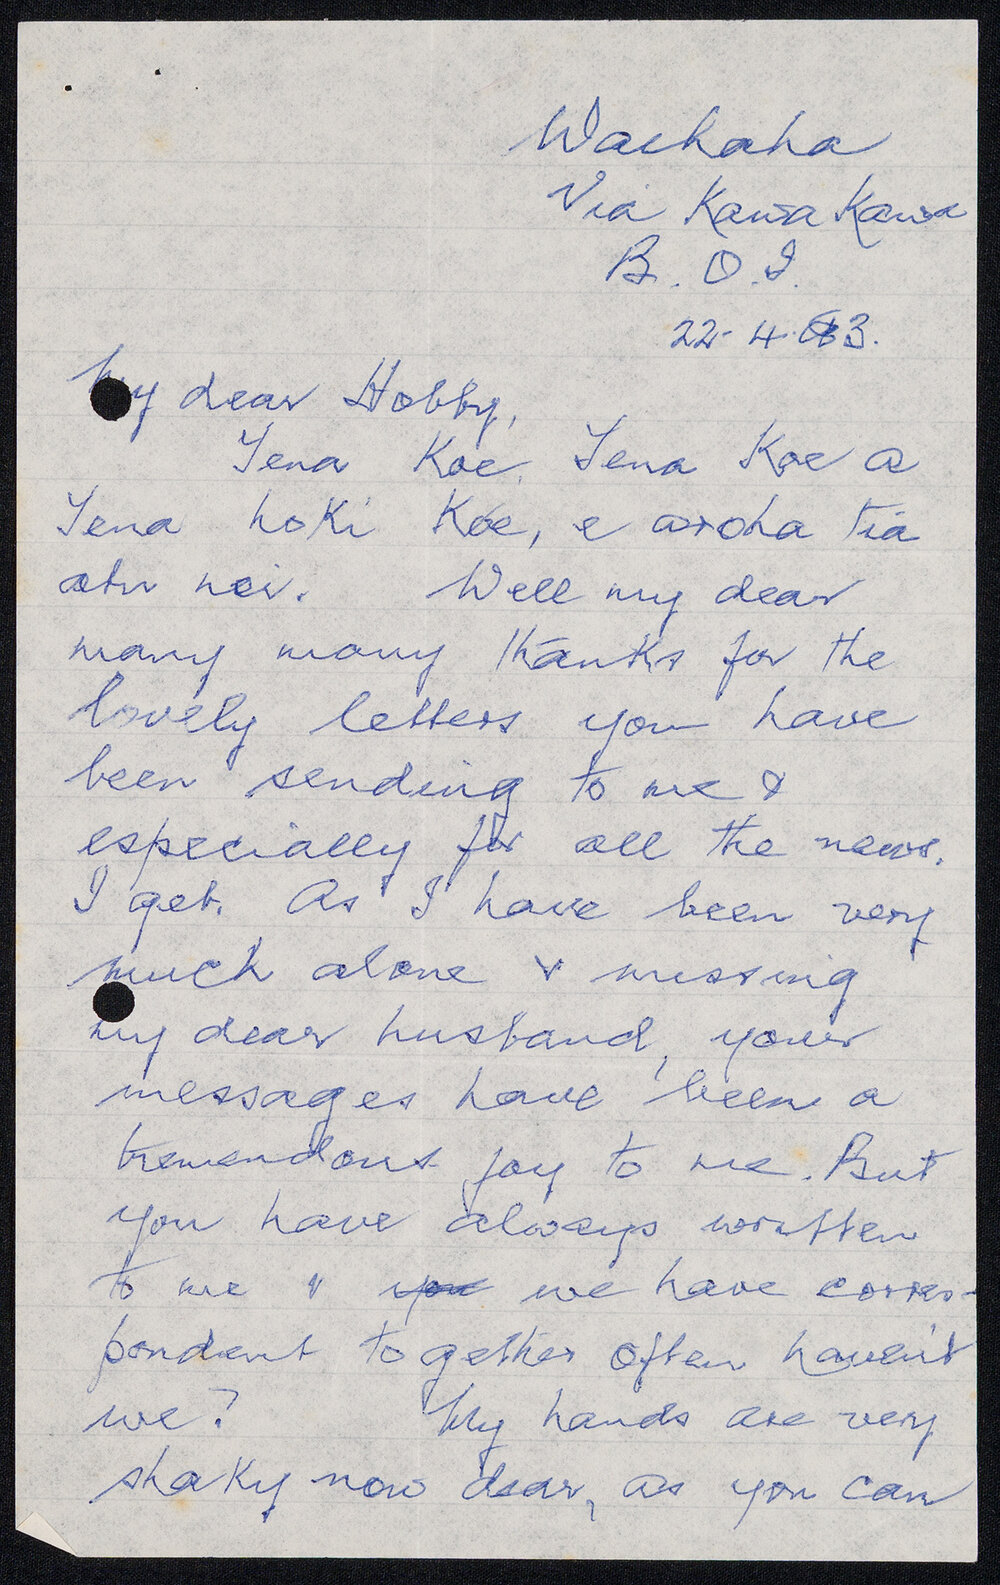 Waihaha
Via Kawa Kawa
B.O.I.
22-4-63.
My dear Hobby,
Tena Koe. Tena Koe a
Tena hoKi Koe, e aroha tia
atu nei. Well my dear
many many thanks for the
lovely letters you have
been sending to me &
especially for all the news.
I get. As I have been very
much alone & missing
my dear husband, your
messages have been a
tremendous joy to me. But
you have always written
to me & you we have corres-
pondent together often haven't
we? My hands are very
shaky now dear, as you can